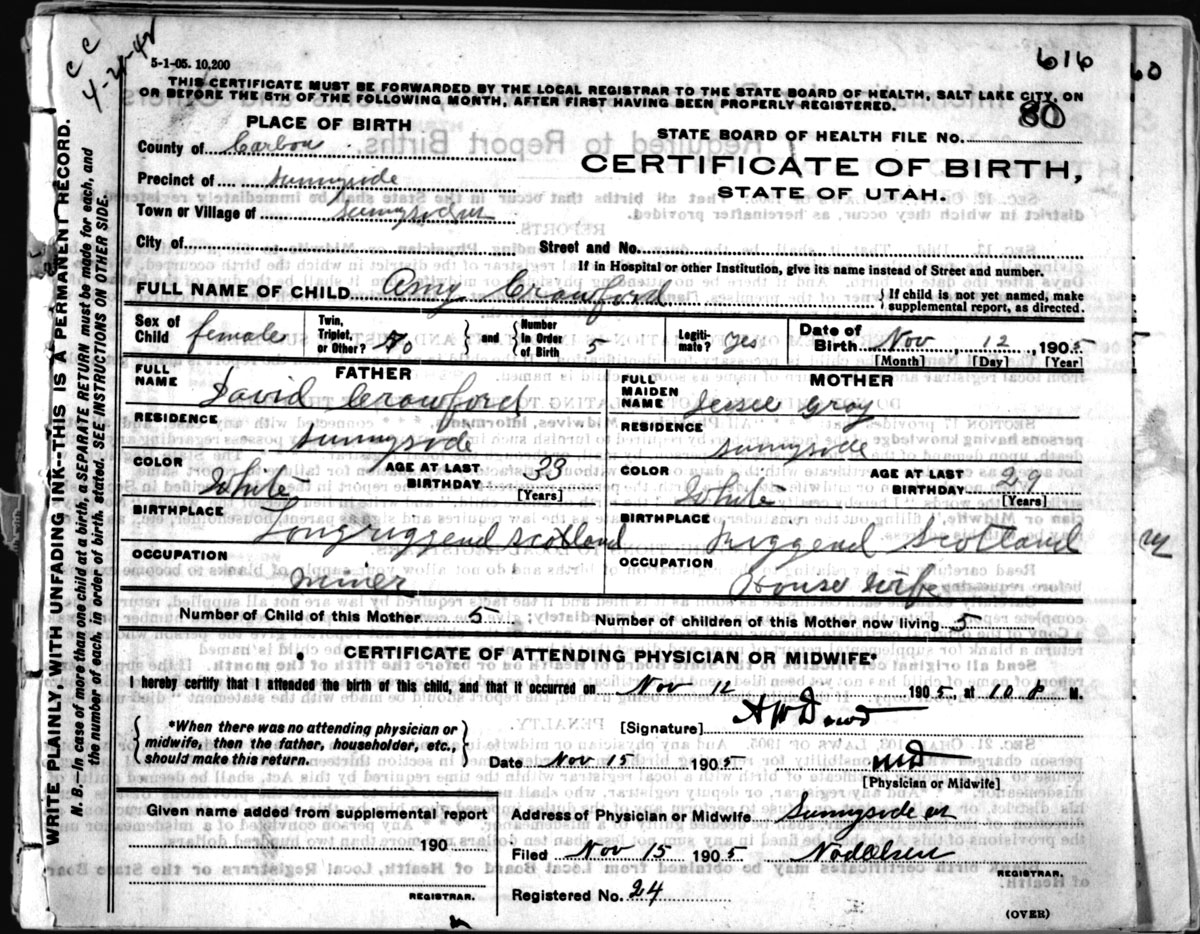 C C
4-2-42
616
60
5-1-05. 10,200
THIS CERTIFICATE MUST BE FORWARDED BY THE LOCAL REGISTRAR TO THE STATE BOARD OF HEALTH, SALT LAKE CITY, ON
OR BEFORE THE 5TH OF THE FOLLOWING MONTH, AFTER FIRST HAVING BEEN PROPERLY REGISTERED.
80
PLACE OF BIRTH
STATE BOARD OF HEALTH FILE No.
County of Carbon
CERTIFICATE OF BIRTH,
STATE OF UTAH.
Precinct of Sunnyside
Town or Village of Sunnyside ut
City of Street and No.
If in Hospital or other Institution, give its name instead of Street and number.
FULL NAME OF CHILD Amy Crawford { If child is not yet named, make supplemental report, as directed.
Sex of Child female Twin, Triplet, or Other? No } and { Number In Order of Birth 5 Legitimate? yes Date of Birth Nov, 12, 1905
[Month] [Day] [Year]
FATHER
MOTHER
FULL NAME David Crawford
FULL MAIDEN NAME Gray
RESIDENCE Sunnyside
RESIDENCE Sunnyside
COLOR White AGE AT LAST BIRTHDAY 33 [Years]
COLOR White AGE AT LAST BIRTHDAY 29 [Years]
BIRTHPLACE Longriggend Scotland
BIRTHPLACE Riggend Scotland
OCCUPATION miner
OCCUPATION House Wife
Number of Child of this Mother 5 Number of children of this Mother now living 5
CERTIFICATE OF ATTENDING PHYSICIAN OR MIDWIFE*
I hereby certify that I attended the birth of this child, and that it occurred on Nov 12 1905, at 10 P. M.
{ *When there was no attending physician or midwife, then the father, householder, etc., should make this return. }
[Signature] A W Dowd
Date Nov 15 1905 MD
[Physician or Midwife]
Given name added from supplemental report
190
REGISTRAR.
Address of Physician or Midwife Sunnyside ut
Filed Nov 15 1905
REGISTRAR.
Registered No. 24
(OVER)
WRITE PLAINLY, WITH UNFADING INK--THIS IS A PERMANENT RECORD.
N. B.—In case of more than one child at a birth, a SEPARATE RETURN must be made for each, and
the number of each, in order of birth, stated. SEE INSTRUCTIONS ON OTHER SIDE.